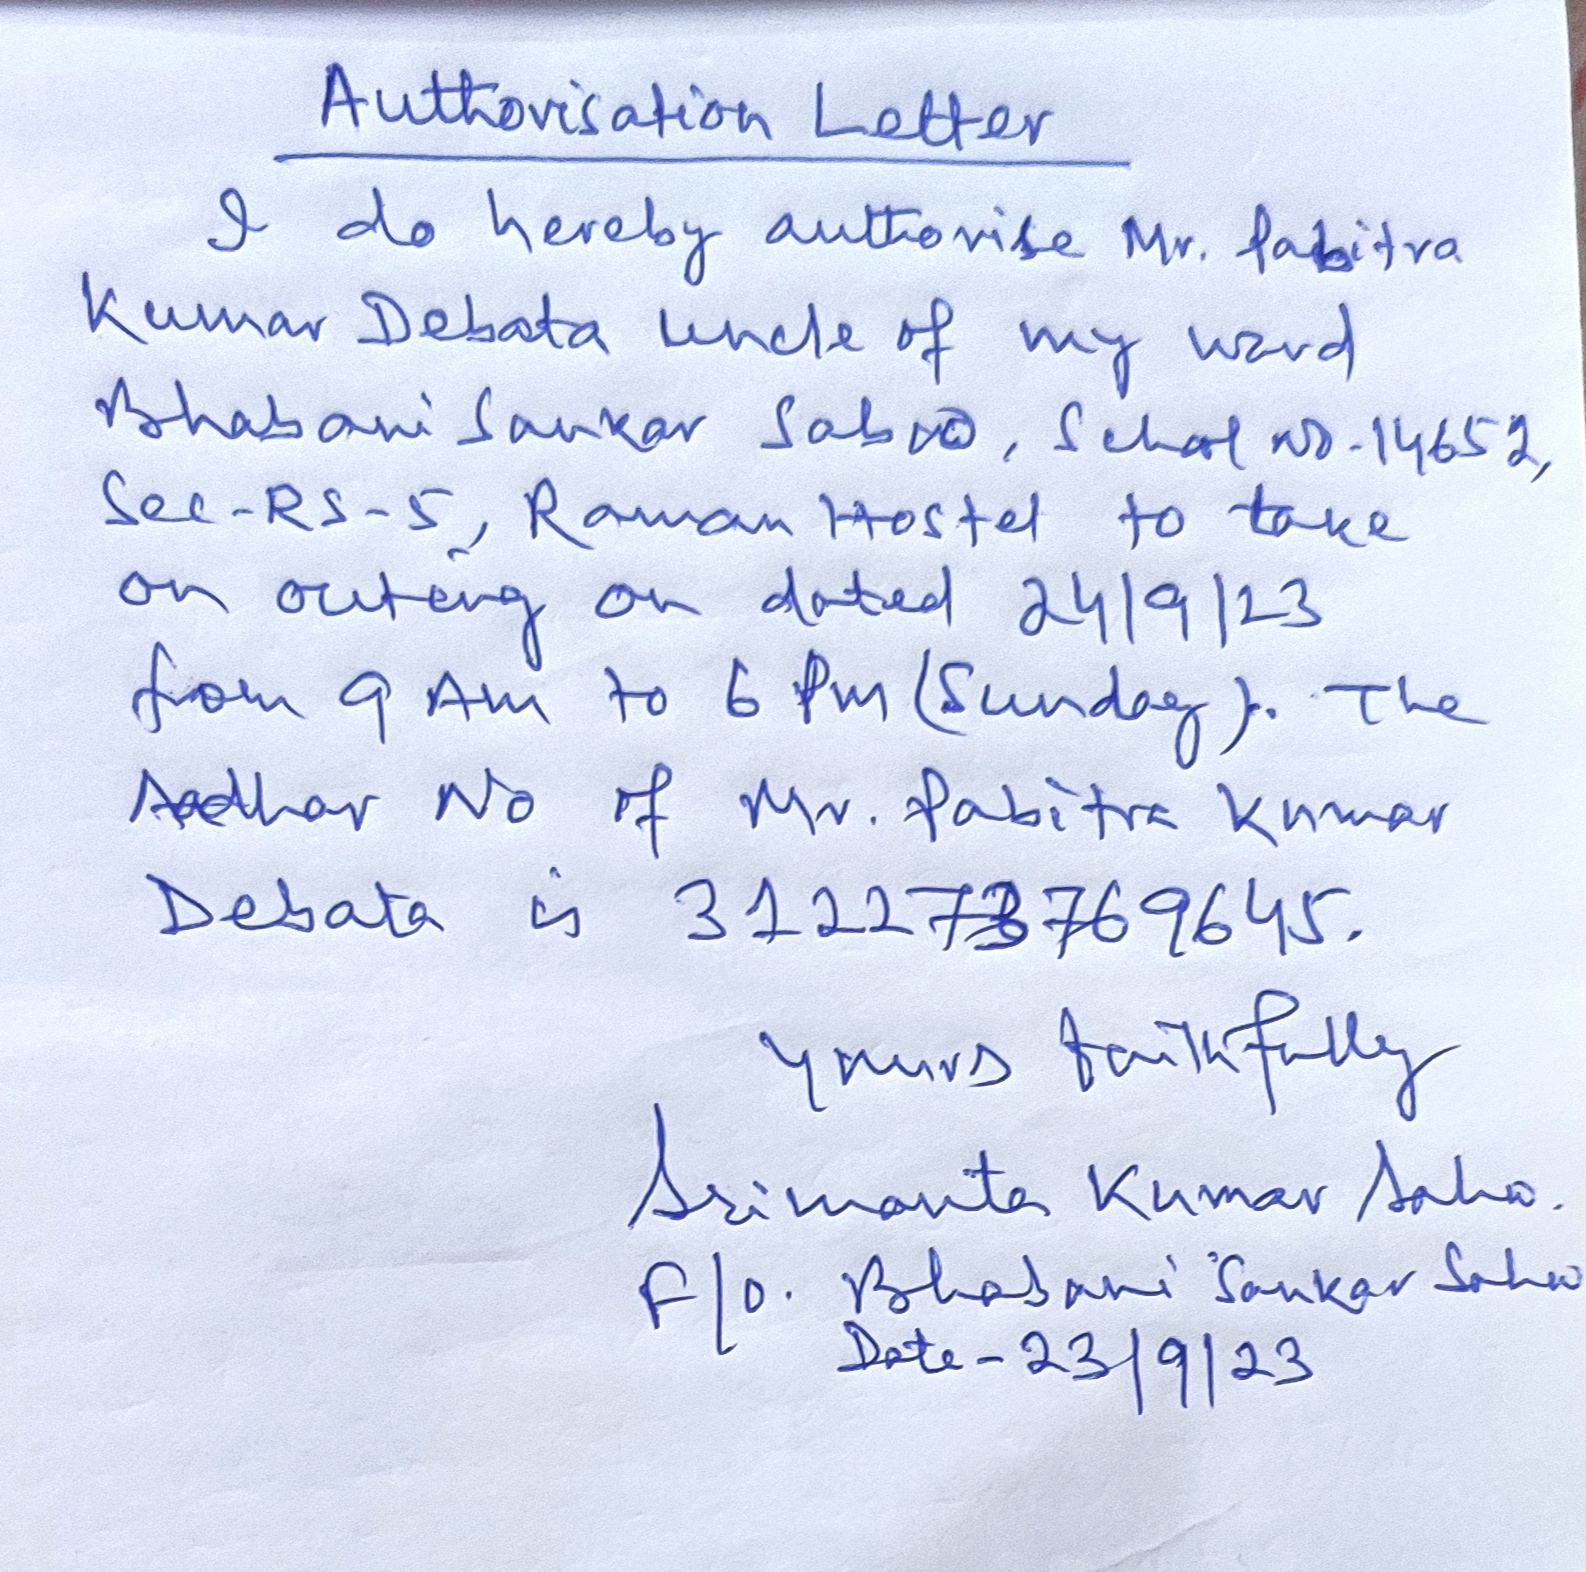 Authorisation Letter
I do hereby authorise Mr. Pabitra
Kumar Debata uncle of my ward
Bhabani Sankar Sahoo, School No-14652,
Sec-RS-5, Raman Hostel to take
on outing on dated 24/9/23
from 9 AM to 6 PM (Sunday). The
Aadhar No of Mr. Pabitra Kumar
Debata is
Yours faithfully
Srimanta Kumar Sahoo.
F/O. Bhabani Sankar Sahoo
Date - 23/9/23